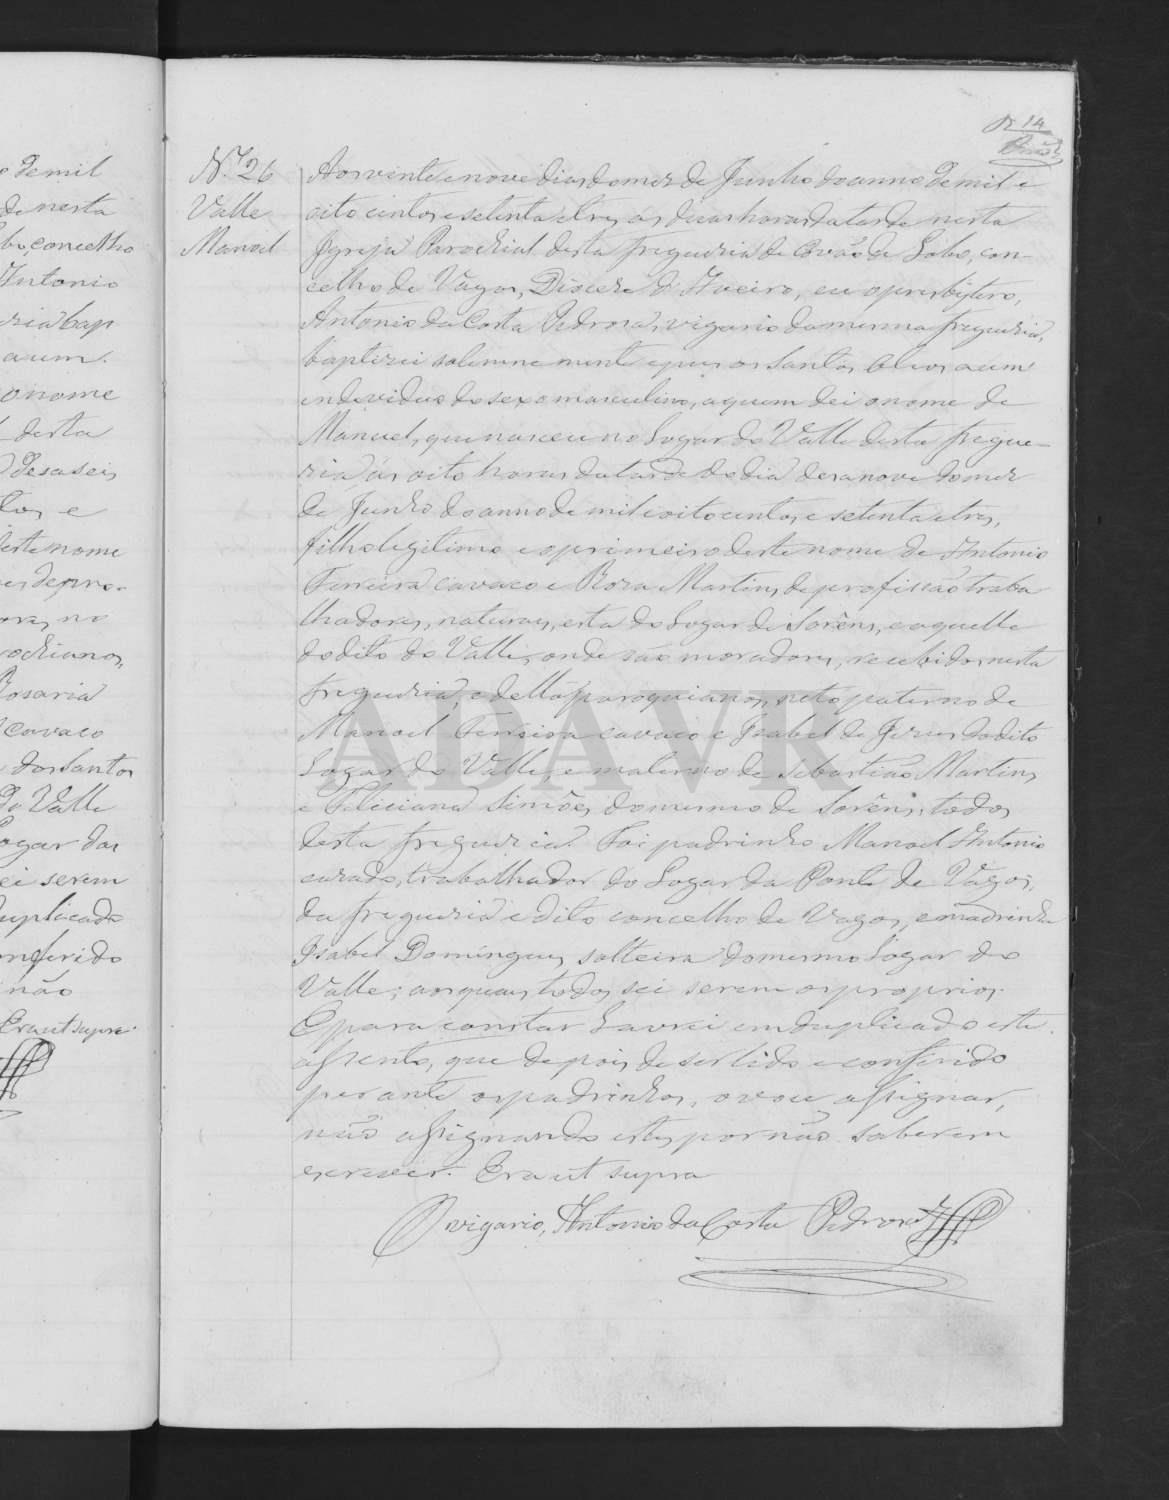 14
N.º 26
Valle
Manoel
Aos vinte e nove dias do mez de Junho do anno de mil e
oito centos e setenta e tres, as duas horas da tarde nesta
Igreja Parochial desta freguezia de Covão do Lobo, con-
celho de Vagos, Diocese d'Aveiro, eu o presbytero,
Antonio da Costa Pedroza, vigario da mesma freguezia,
baptizei solemne mente e puz os Santos Oleos a um
individuo do sexo masculino, a quem dei o nome de
Manuel, que nasceu no Logar do Valle desta fregue-
zia ás oito horas da tarde do dia desanove do mez
de Junho do anno de mil e oito centos e setenta e tres,
filho legitimo e o primeiro deste nome de Antonio
Ferreira cavaco e Roza Martins, de profissão traba
lhadores, naturaes, esta do Logar de Sorêns, e aquelle
do dito do Valle, onde são moradores, recebidos nesta
freguezia, e della paroquianos, neto paterno de
Manoel Ferreira cavaco e Izabel de Jezus do dito
Logar do Valle, e materno de Sebastião Martins,
e Feliciana Simões, do mesmo de Sorêns, todos
desta freguezia. Foi padrinho Manoel Antonio
curado, trabalhador do Logar da Ponte de Vagos,
da freguezia e dito concelho de Vagos, e madrinha
Izabel Domingues, solteira do mesmo Logar do
Valle; aos quaes todos sei serem os proprios.
E para constar Lavrei em duplicado este
assento, que depois de ser lido e conferido
perante os padrinhos, o vou assignar,
não assignando estes por não saberem
escrever. Era ut supra
O vigario, Antonio da Costa Pedroza
ADAVR
o de mil
de nesta
bo, concelho
Antonio
ezia bap
a um
o nome
desta
desaseis
tos e
deste nome
es de pro-
ores, no
rochianos,
Rosaria
cavaco
dos Santos
do Valle
Logar das
ei serem
duplicado
onferido
não
Era ut supra.